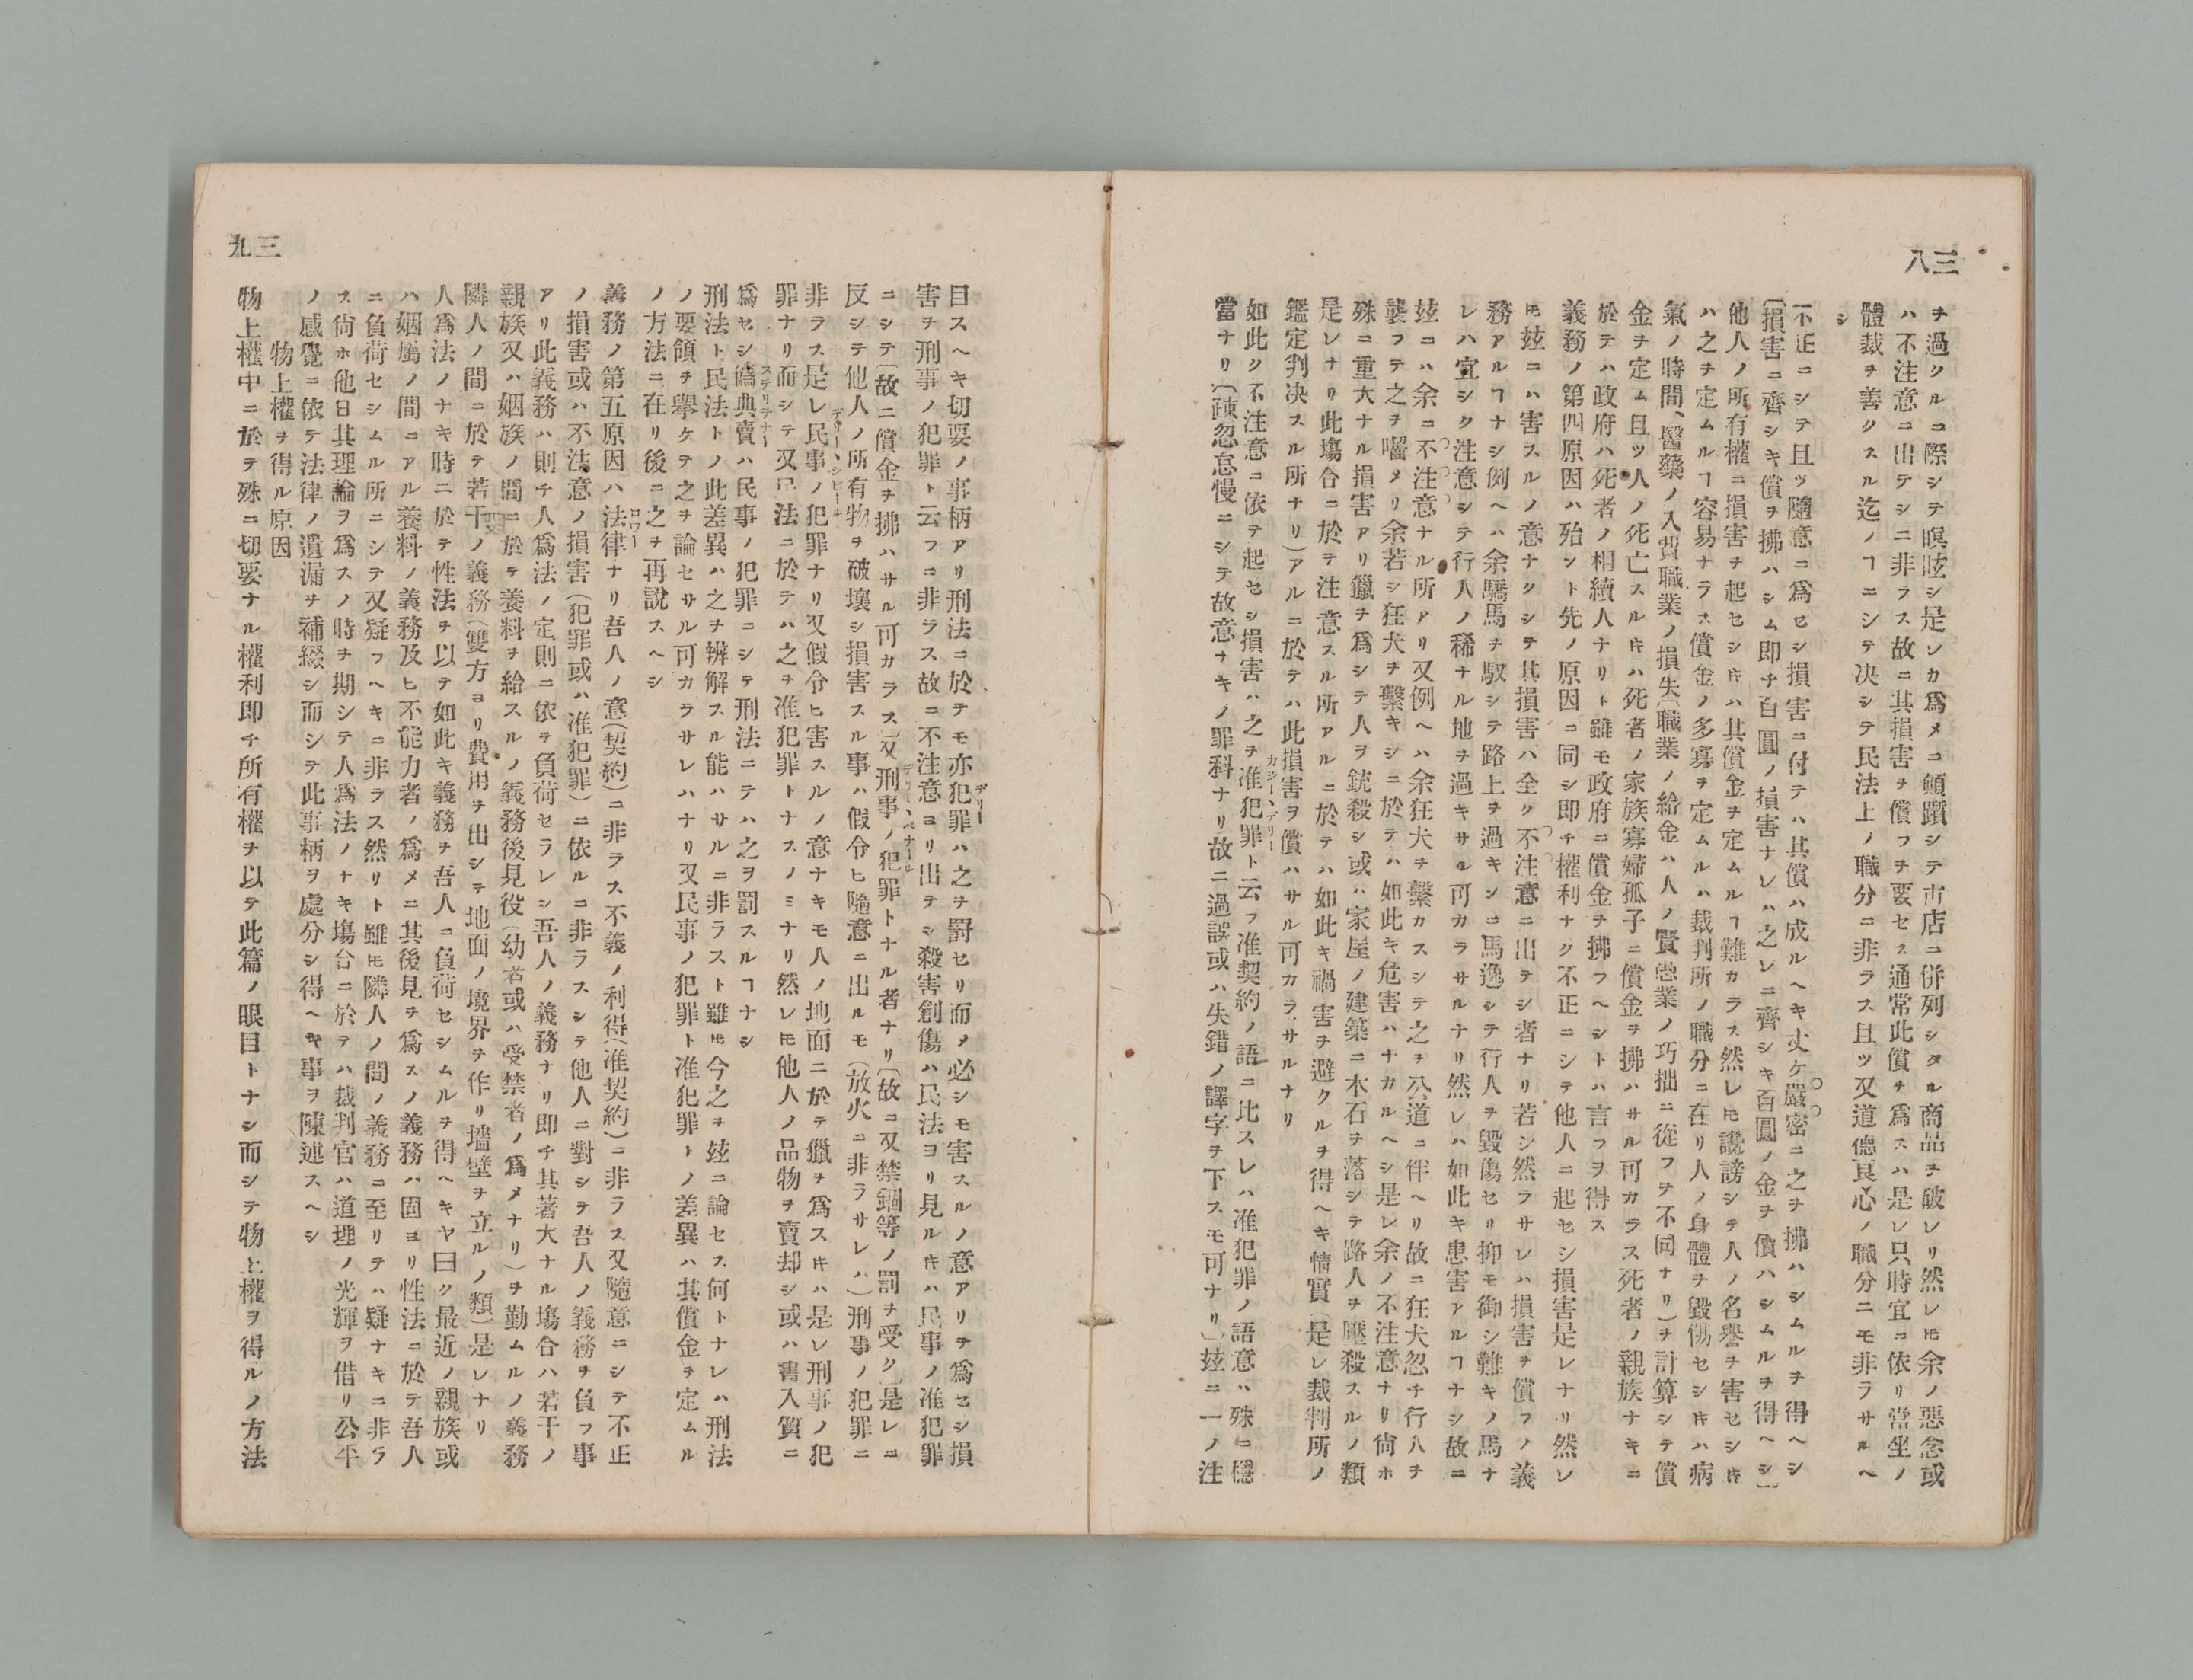 三八
ヲ過クルニ際シテ瞑眩シ是レカ爲メニ顚躓シテ市店ニ併列シタル商品ヲ破レリ然レ𪜈余ノ惡念或
ハ不注意ニ出テシニ非ラス故ニ其損害ヲ償フヲ要セス通常此償ヲ爲スハ是レ只時宜ニ依リ當坐ノ
體裁ヲ善クスル迄ノヿニシテ决シテ民法上ノ職分ニ非ラス且ツ又道德良心ノ職分ニモ非ラサルヘ
シ
不正ニシテ且ツ隨意ニ爲セシ損害ニ付テハ其償ハ成ルヘキ丈ケ嚴密ニ之ヲ拂ハシムルヲ得ヘシ
〔損害ニ齊シキ償ヲ拂ハシム即チ百圓ノ損害ナレハ之レニ齊シキ百圓ノ金ヲ償ハシムルヲ得ヘシ〕
他人ノ所有權ニ損害ヲ起セシ𪜈ハ其償金ヲ定ムルヿ難カラス然レ𪜈讒謗シテ人ノ名譽ヲ害セシ𪜈
ハ之ヲ定ムルヿ容易ナラス償金ノ多寡ヲ定ムルハ裁判所ノ職分ニ在リ人ノ身體ヲ毀傷セシ𪜈ハ病
氣ノ時間、醫藥ノ入費職業ノ損失〔職業ノ給金ハ人ノ賢愚業ノ巧拙ニ從フヲ不同ナリ〕ヲ計算シテ償
金ヲ定ム且ツ人ノ死亡スル𪜈ハ死者ノ家族寡婦孤子ニ償金ヲ拂ハサル可カラス死者ノ親族ナキニ
於テハ政府ハ死者ノ相續人ナリト雖モ政府ニ償金ヲ拂フヘシトハ言フヲ得ス
義務ノ第四原因ハ殆シト先ノ原因ニ同シ即チ權利ナク不正ニシテ他人ニ起セシ損害是レナリ然レ
𪜈玆ニハ害スルノ意ナクシテ其損害ハ全ク不注意ニ出テシ者ナリ若シ然ラサレハ損害ヲ償フノ義
務アルヿナシ例ヘハ余驕馬ヲ馭シテ路上ヲ過キシニ馬逸シテ行人ヲ毀傷セリ抑モ御シ難キノ馬ナ
レハ宜シク注意シテ行人ノ稀ナル地ヲ過キサル可カラサルナリ然レハ如此キ患害アルヿナシ故ニ
玆ニハ余ニ不注意ナル所アリ又例ヘハ余狂犬ヲ繫カスシテ之ヲ公道ニ伴ヘリ故ニ狂犬忽チ行人ヲ
襲フテ之ヲ囓メリ余若シ狂犬ヲ繫キシニ於テハ如此キ危害ハナカルヘシ是レ余ノ不注意ナリ尙ホ
殊ニ重大ナル損害アリ獵ヲ爲シテ人ヲ銃殺シ或ハ家屋ノ建築ニ木石ヲ落シテ路人ヲ壓殺スルノ類
是レナリ此塲合ニ於テ注意スル所アルニ於テハ如此キ禍害ヲ避クルヲ得ヘキ情實〔是レ裁判所ノ
鑑定判决スル所ナリ〕アルニ於テハ此損害ヲ償ハサル可カラサルナリ
如此ク不注意ニ依テ起セシ損害ハ之ヲ准犯罪ト云フ准契約ノ語ニ比スレハ准犯罪ノ語意ハ殊ニ穩
當ナリ〔疎忽怠慢ニシテ故意ナキノ罪科ナリ故ニ過誤或ハ失錯ノ譯字ヲ下スモ可ナリ〕玆ニ一ノ注
三九
目スヘキ切要ノ事柄アリ刑法ニ於テモ亦犯罪ハ之ヲ罸セリ而メ必シモ害スルノ意アリテ爲セシ損
害ヲ刑事ノ犯罪ト云フニ非ラス故ニ不注意ヨリ出テシ殺害創傷ハ民法ヨリ見ル𪜈ハ民事ノ准犯罪
ニシテ〔故ニ償金ヲ拂ハサル可カラス〕又刑事ノ犯罪トナル者ナリ〔故ニ又禁錮等ノ罰ヲ受ク〕是レニ
反シテ他人ノ所有物ヲ破壞シ損害スル事ハ假令ヒ隨意ニ出ルモ（放火ニ非ラサレハ）刑事ノ犯罪ニ
非ラス是レ民事ノ犯罪ナリ又假令ヒ害スルノ意ナキモ人ノ地面ニ於テ獵ヲ爲ス𪜈ハ是レ刑事ノ犯
罪ナリ而シテ又民法ニ於テハ之ヲ准犯罪トナスノミナリ然レ𪜈他人ノ品物ヲ賣却シ或ハ書入質ニ
爲セシ僞典賣ハ民事ノ犯罪ニシテ刑法ニテハ之ヲ罰スルヿナシ
刑法ト民法トノ此差異ハ之ヲ辨解スル能ハサルニ非ラスト雖𪜈今之ヲ玆ニ論セス何トナレハ刑法
ノ要領ヲ擧ケテ之ヲ論セサル可カラサレハナリ又民事ノ犯罪ト准犯罪トノ差異ハ其償金ヲ定ムル
ノ方法ニ在リ後ニ之ヲ再說スヘシ
義務ノ第五原因ハ法律ナリ吾人ノ意（契約）ニ非ラス不義ノ利得（准契約）ニ非ラス又隨意ニシテ不正
ノ損害或ハ不注意ノ損害（犯罪或ハ准犯罪）ニ依ルニ非ラスシテ他人ニ對シテ吾人ノ義務ヲ負フ事
アリ此義務ハ則チ人爲法ノ定則ニ依テ負荷セラレシ吾人ノ義務ナリ即チ其著大ナル塲合ハ若干ノ
親族又ハ姻族ノ間ニ於テ養料ヲ給スルノ義務後見役（幼者或ハ受禁者ノ爲メナリ）ヲ勤ムルノ義務
隣人ノ間ニ於テ若干ノ義務（雙方ヨリ費用ヲ出シテ地面ノ境界ヲ作リ墻壁ヲ立ルノ類）是レナリ
人爲法ノナキ時ニ於テ性法ヲ以テ如此キ義務ヲ吾人ニ負荷セシムルヲ得ヘキヤ曰ク最近ノ親族或
ハ姻屬ノ間ニアル養料ノ義務及ヒ不能力者ノ爲メニ其後見ヲ爲スノ義務ハ固ヨリ性法ニ於テ吾人
ニ負荷セシムル所ニシテ又疑フヘキニ非ラス然リト雖𪜈隣人ノ間ノ義務ニ至リテハ疑ナキニ非ラ
ス尙ホ他日其理論ヲ爲スノ時ヲ期シテ人爲法ノナキ塲合ニ於テハ裁判官ハ道理ノ光輝ヲ借リ公平
ノ感覺ニ依テ法律ノ遺漏ヲ補綴シ而シテ此事柄ヲ處分シ得ヘキ事ヲ陳述スヘシ
物上權ヲ得ル原因
物上權中ニ於テ殊ニ切要ナル權利即チ所有權ヲ以テ此篇ノ眼目トナシ而シテ物上權ヲ得ルノ方法